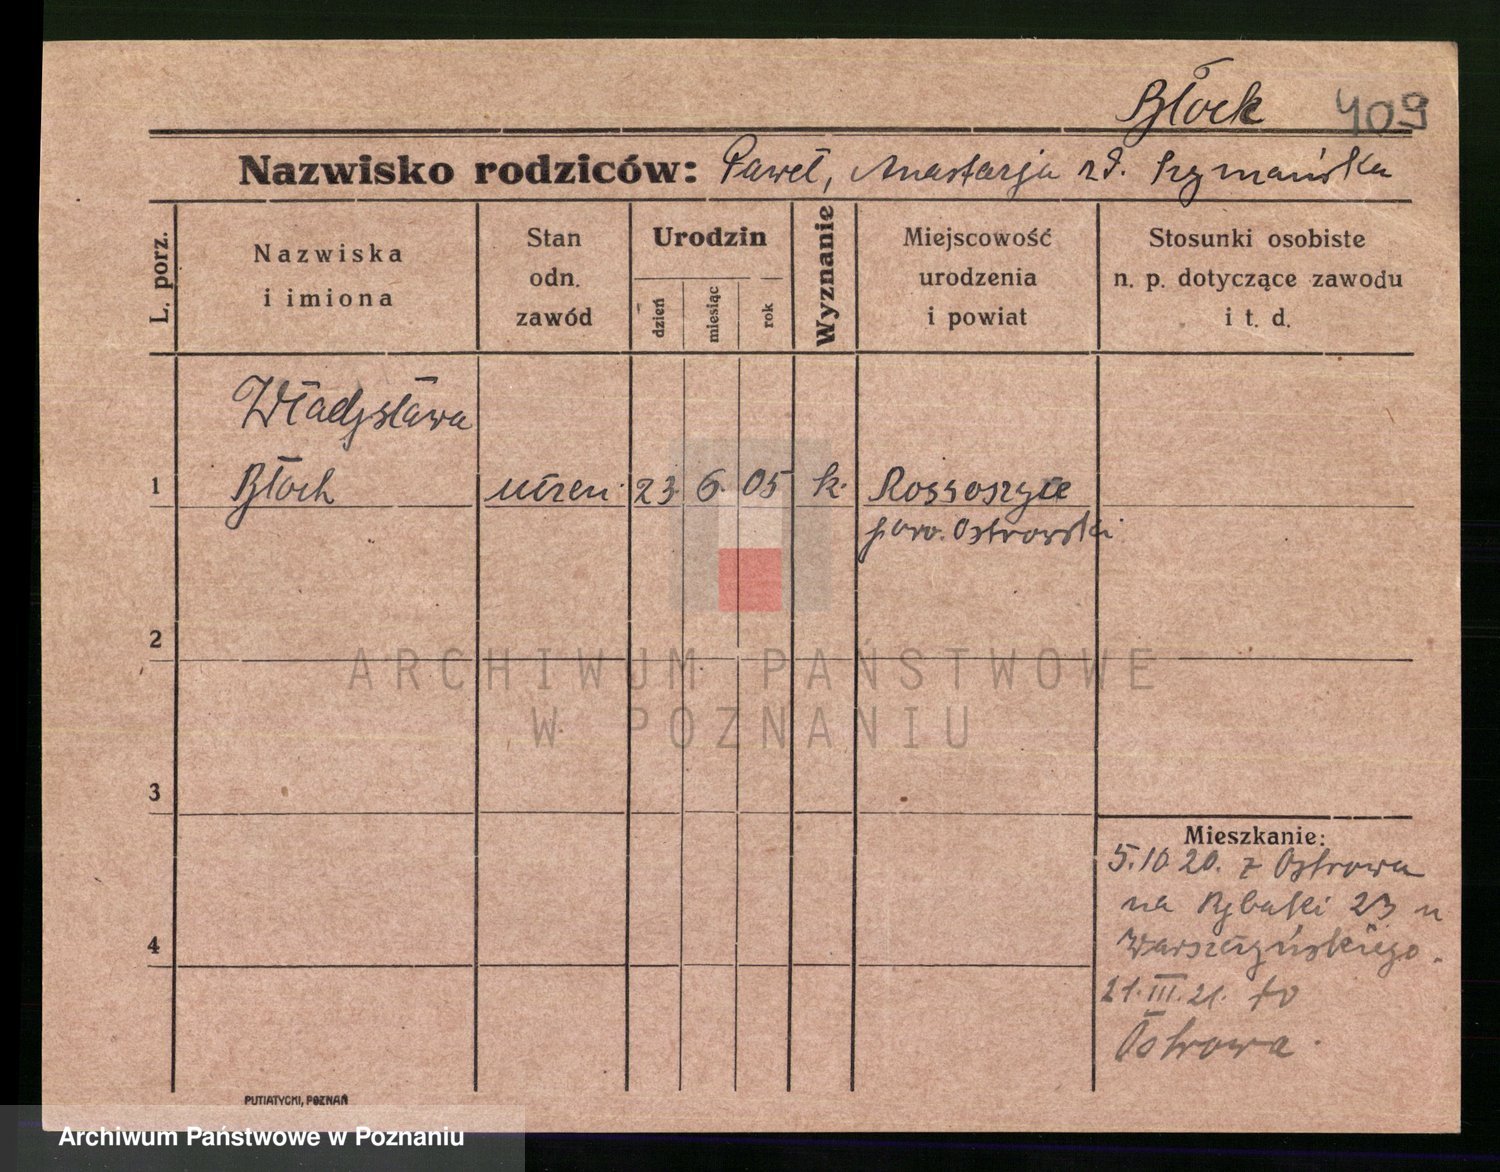 Błock 409
Nazwisko rodziców: Paweł, Anastazja zd. Szymańska
L. porz.
Nazwiska
i imiona
Stan
odn.
zawód
Urodzin
dzień
miesiąc
rok
Wyznanie
Miejscowość
urodzenia
i powiat
Stosunki osobiste
n. p. dotyczące zawodu
i t. d.
Władysława
1 Błoch uczen. 23. 6. 05 k. Rossoszyce
pow. Ostrowski
2
3
4
Mieszkanie:
5.10.20. z Ostrowa
na Rybaki 23 u
21.III.21. do
Ostrowa.
PUTIATYCKI, POZNAŃ
ARCHIWUM PAŃSTWOWE
W POZNANIU
Archiwum Państwowe w Poznaniu